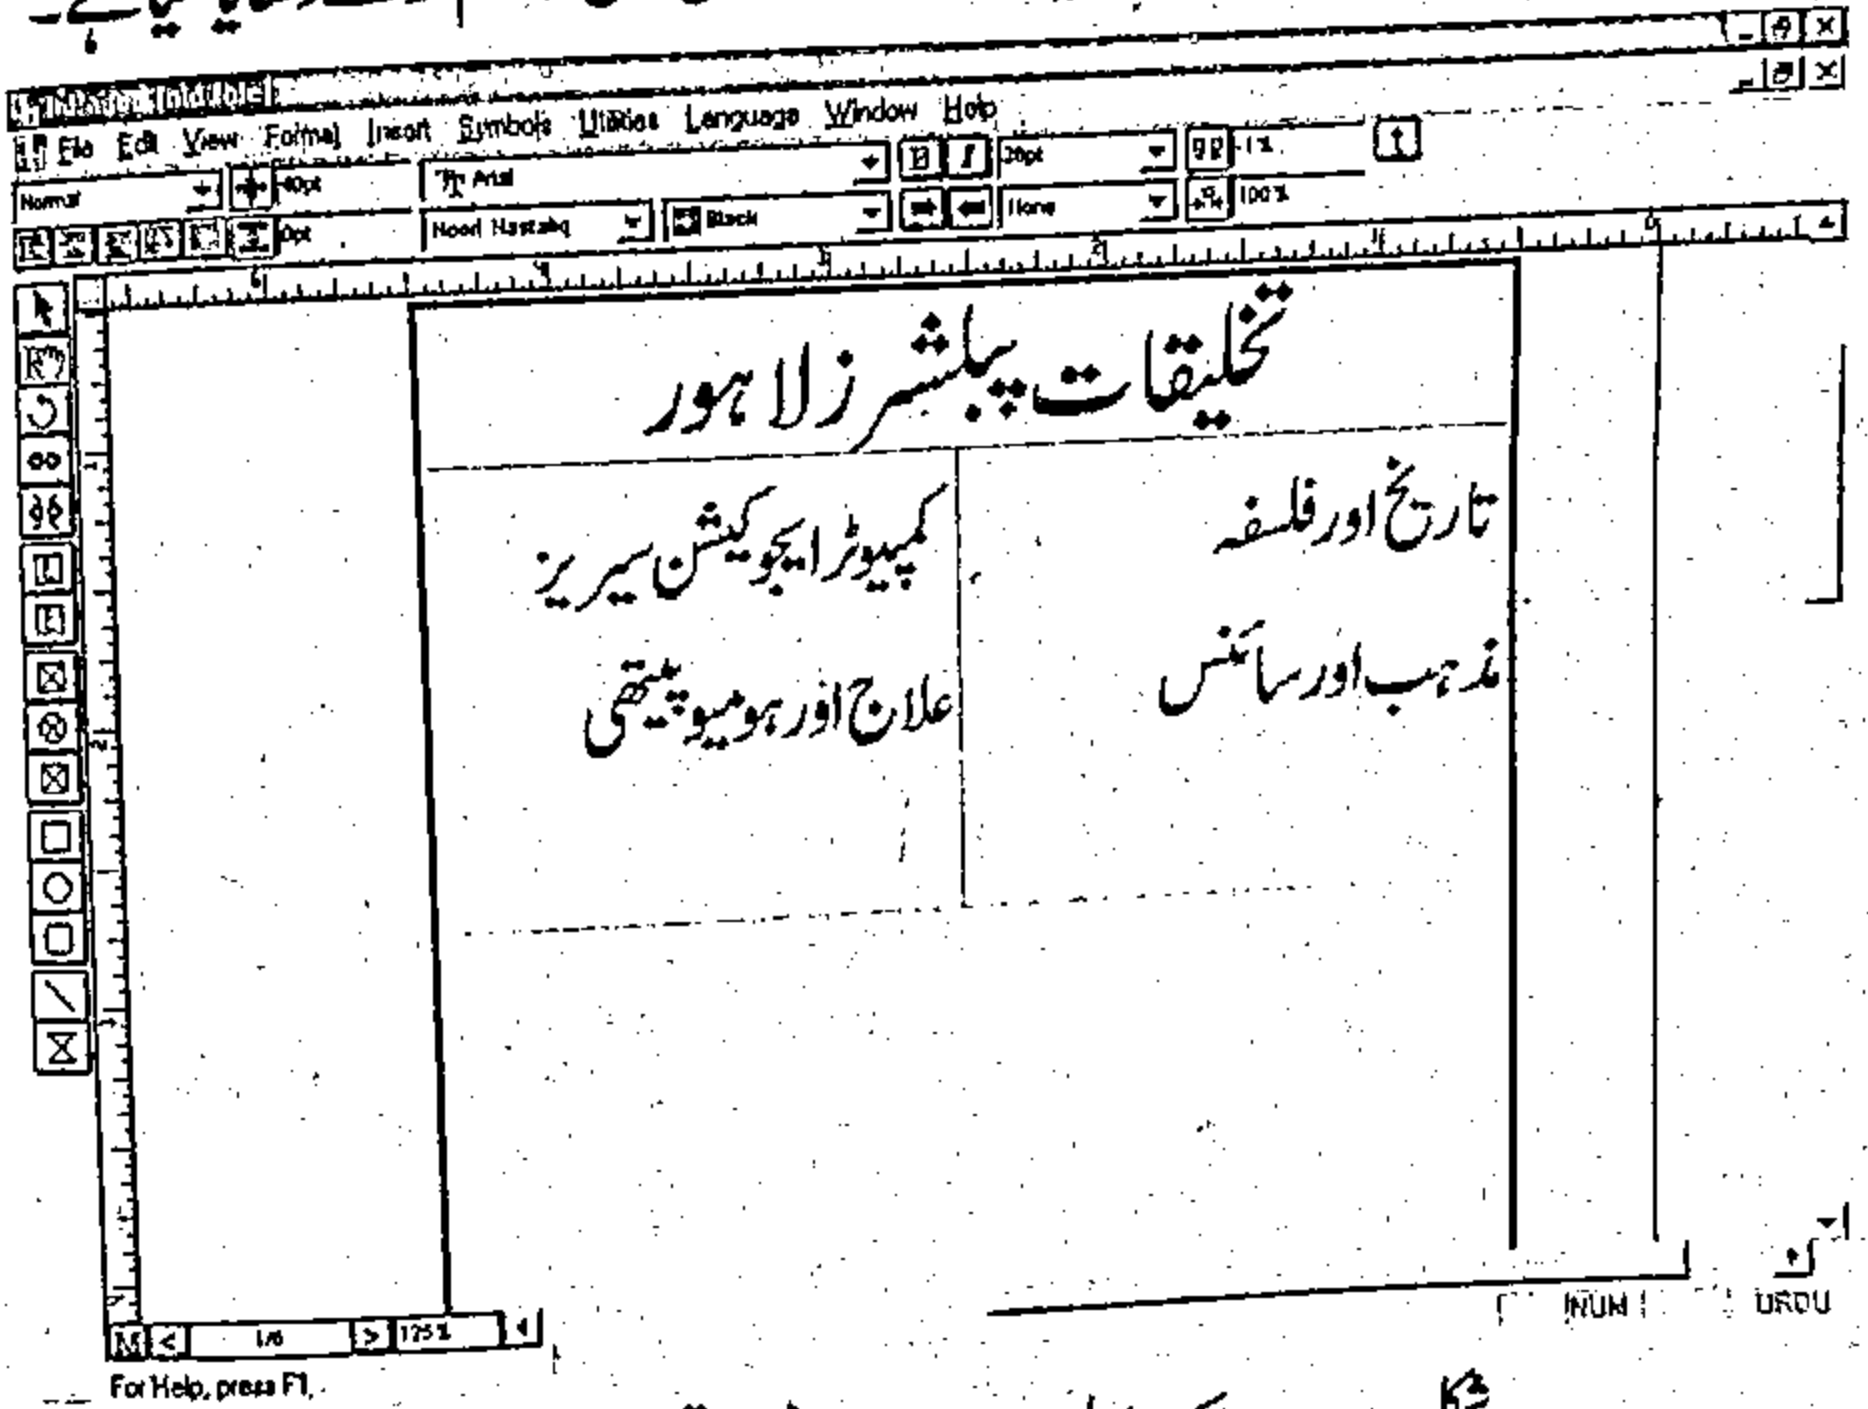 File Edit View Format Insert Symbols Utilities Language Window Help
Normal 40pt Arial B I 20pt -1% 
0pt Noori Nastaliq Black None 100%
تخلیقات پبلشرز لاہور
تاریخ اور فلسفہ
کمپیوٹر ایجوکیشن سیریز
مذہب اور سائنس
علاج اور ہومیوپیتھی
M < 1/6 > 125%
NUM URDU
For Help, press F1,